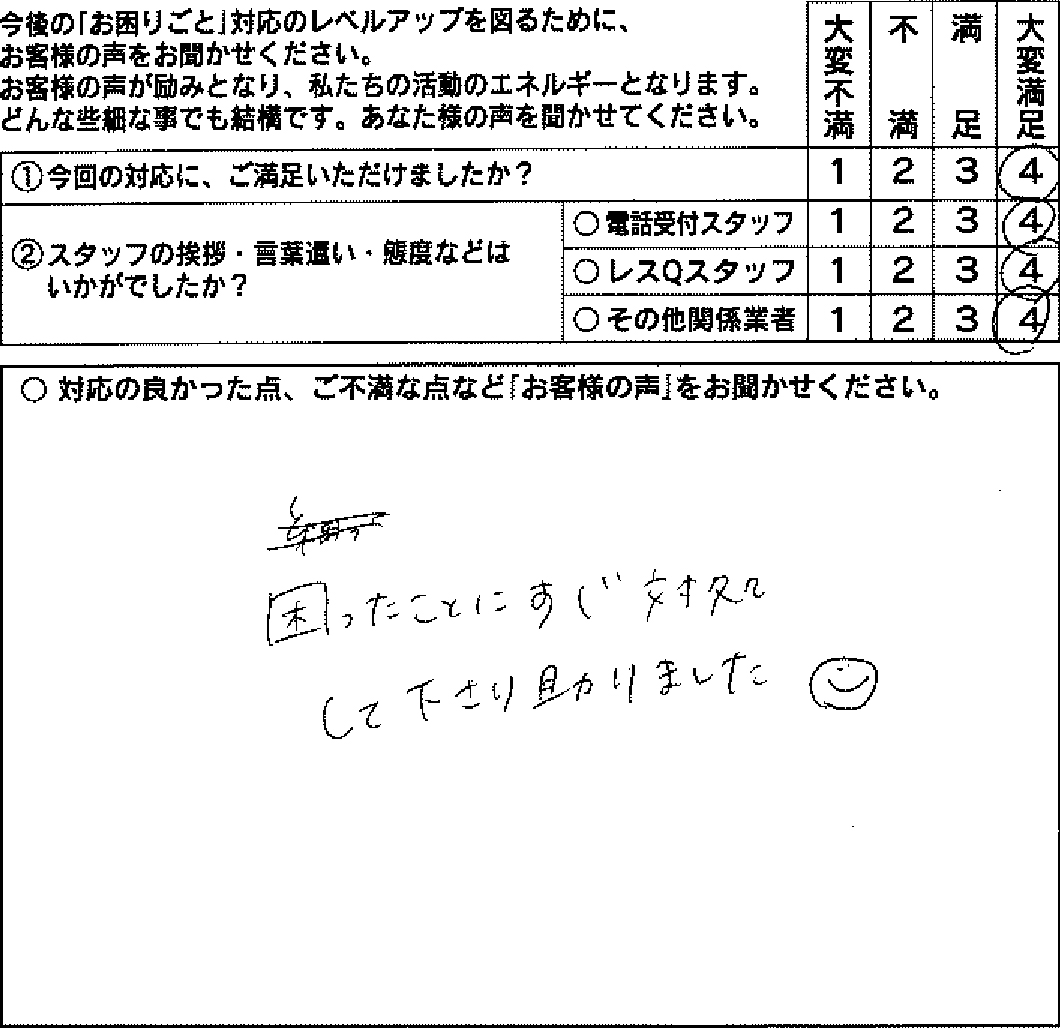 今後の「お困りごと」対応のレベルアップを図るために、
お客様の声をお聞かせください。
お客様の声が励みとなり、私たちの活動のエネルギーとなります。
どんな些細な事でも結構です。あなた様の声を聞かせてください。
大変不満 不満 満足 大変満足
①今回の対応に、ご満足いただけましたか？ 1 2 3 4
②スタッフの挨拶・言葉遣い・態度などは
いかがでしたか？
○電話受付スタッフ 1 2 3 4
○レスQスタッフ 1 2 3 4
○その他関係業者 1 2 3 4
○ 対応の良かった点、ご不満な点など「お客様の声」をお聞かせください。
困ったことにすぐ対処
して下さり助かりました